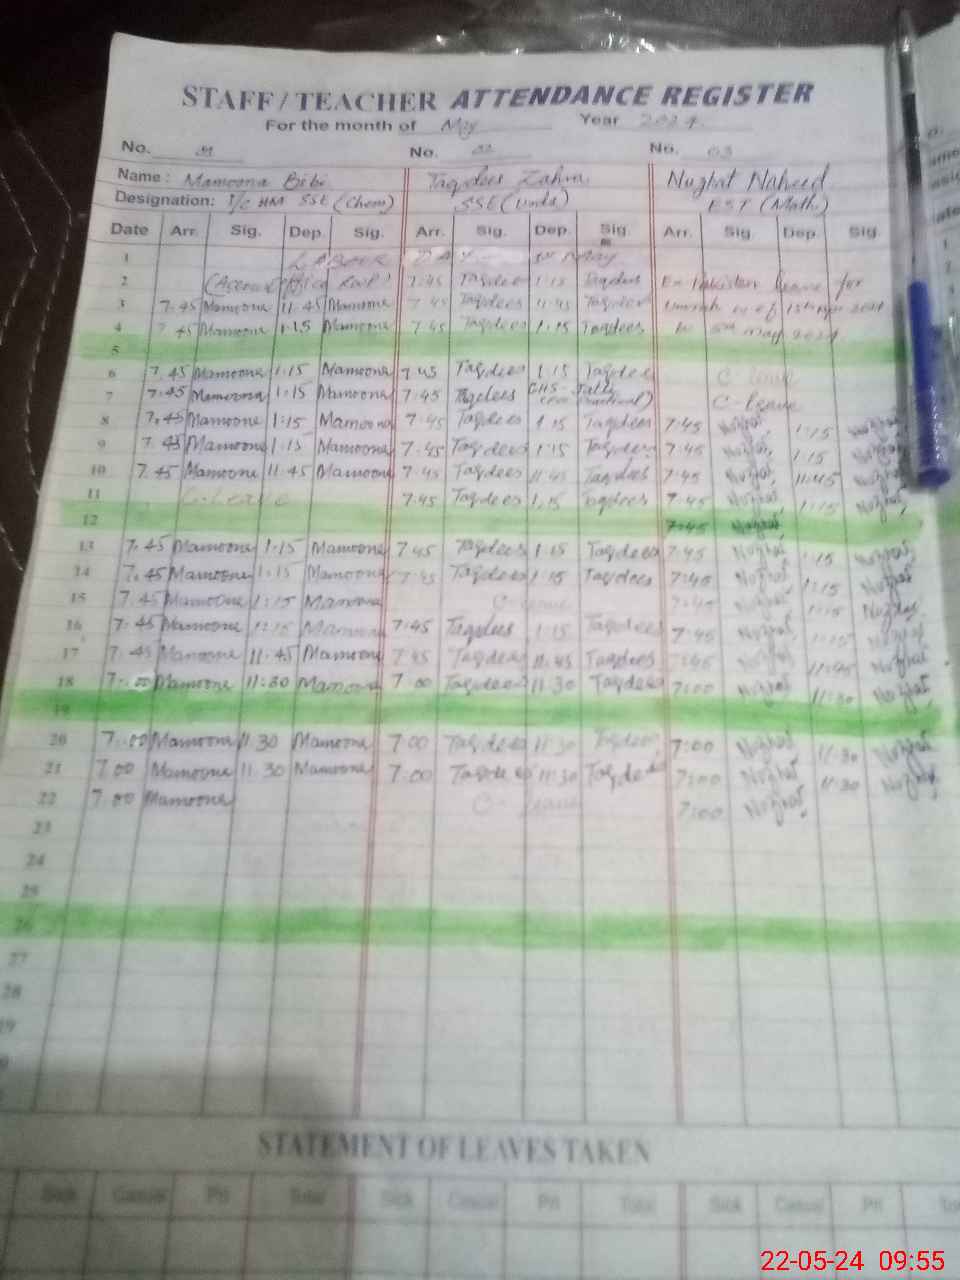 STAFF / TEACHER ATTENDANCE REGISTER
For the month of May Year 2024
No. 01 No. 02 No. 03
Name: Mamoona Bibi Taqdees Zahra Nuzhat Naheed
Designation: I/C HM SSE (Chem) SSE (Urdu) EST (Math)
Date Arr. Sig. Dep. Sig. Arr. Sig. Dep. Sig. Arr. Sig. Dep. Sig.
1 LABOUR DAY 1st MAY
2 (Account Office 7:45 Taqdees 1:15 Taqdees Ex-Pakistan leave for
3 7.45 Mamoona 11.45 Mamoona 7:45 Taqdees 11:45 Taqdees 2024
4 7.45 Mamoona 1:15 Mamoona 7:45 Taqdees 1:15 Taqdees to 5th may 2024
5
6 7.45 Mamoona 1:15 Mamoona 7:45 Taqdees 1:15 Taqdees C-leave
7 7.45 Mamoona 1:15 Mamoona 7:45 Taqdees GHS C-leave
8 7.45 Mamoona 1:15 Mamoona 7:45 Taqdees 1:15 Taqdees 7:45 Nuzhat 1:15 Nuzhat
9 7.45 Mamoona 1:15 Mamoona 7:45 Taqdees 1:15 Taqdees 7:45 Nuzhat 1:15 Nuzhat
10 7.45 Mamoona 11.45 Mamoona 7:45 Taqdees 11:45 Taqdees 7:45 Nuzhat 11:45 Nuzhat
11 C-Leave 7:45 Taqdees 1:15 Taqdees 7:45 Nuzhat 1:15 Nuzhat
12 7:45 Nuzhat
13 7.45 Mamoona 1:15 Mamoona 7:45 Taqdees 1:15 Taqdees 7:45 Nuzhat 1:15 Nuzhat
14 7.45 Mamoona 1:15 Mamoona 7:45 Taqdees 1:15 Taqdees 7:45 Nuzhat 1:15 Nuzhat
15 7.45 Mamoona 1:15 Mamoona C-leave 7:45 Nuzhat 1:15 Nuzhat
16 7.45 Mamoona 1:15 Mamoona 7:45 Taqdees 1:15 Taqdees 7:45 Nuzhat 1:15 Nuzhat
17 7.45 Mamoona 11.45 Mamoona 7:45 Taqdees 11:45 Taqdees 7:45 Nuzhat 11:45 Nuzhat
18 7:00 Mamoona 11:30 Mamoona 7:00 Taqdees 11:30 Taqdees 7:00 Nuzhat 11:30 Nuzhat
19
20 7:00 Mamoona 11.30 Mamoona 7:00 Taqdees 11:30 Taqdees 7:00 Nuzhat 11:30 Nuzhat
21 7.00 Mamoona 11.30 Mamoona 7:00 Taqdees 11:30 Taqdees 7:00 Nuzhat 11:30 Nuzhat
22 7.00 Mamoona C-leave 7:00 Nuzhat
23
24
25
26
27
28
STATEMENT OF LEAVES TAKEN
Sick Casual Pri Total Sick Casual Pri Total Sick Casual Pri
22-05-24 09:55